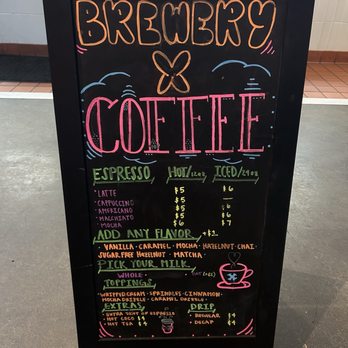 BREWERY
X
COFFEE
ESPRESSO HOT/12oz ICED/24oz
LATTE $5 $6
CAPPUCCINO $5 —
AMERICANO $5 $6
MACCHIATO $5 $6
MOCHA $6 $7
ADD ANY FLAVOR +$1
VANILLA · CARAMEL · MOCHA · HAZELNUT · CHAI
SUGAR FREE HAZELNUT · MATCHA
PICK YOUR MILK
WHOLE OAT
TOPPINGS
WHIPPED CREAM · SPRINKLES · CINNAMON
MOCHA DRIZZLE · CARAMEL DRIZZLE
EXTRAS DRIP
EXTRA SHOT OF ESPRESSO REGULAR $4
HOT COCO $4 DECAF $4
HOT TEA $4